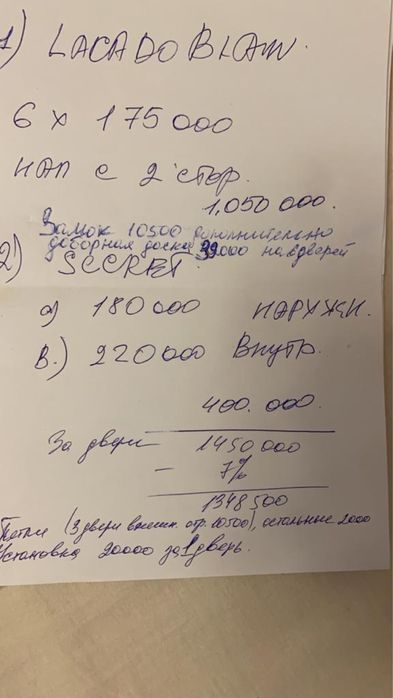 1) LACADO BLAN.
6 x 175 000
НАЛ с 2 стор.
1,050 000.
Замок 10500 дополнительно
доборная доска 39.000 на дверей
2) SECRET.
а) 180 000 НАРУЖН.
В.) 220 000 Внутр.
400. 000.
За двери 1450 000
- 7%
1348 500
Петли (3 двери внешн. отр. 10500), остальные 2000
Установка 20000 за 1 дверь.